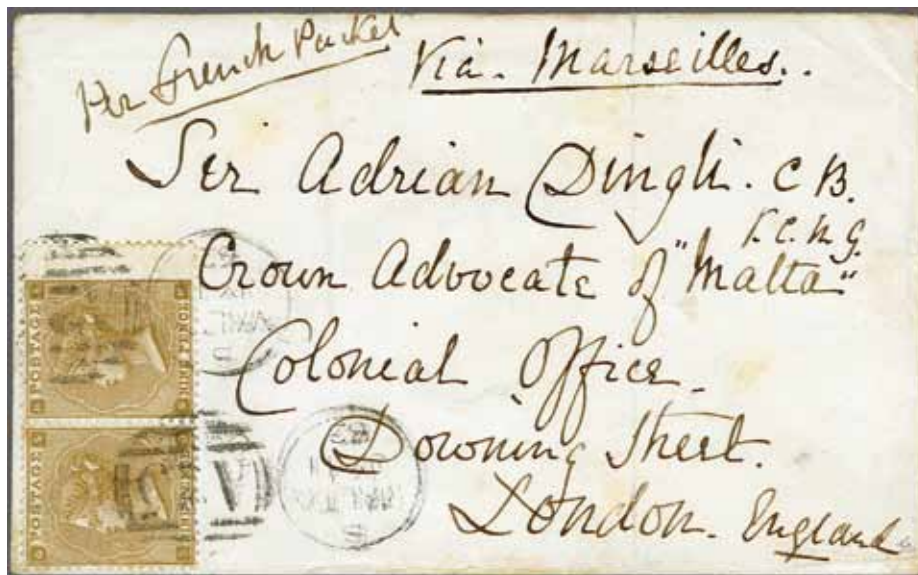 Per French Packet
Via. Marseilles..
Sir Adrian Dingli. C B.
K. C. M. G.
Crown Advocate of "Malta"
Colonial Office.
Downing Street.
London. England
POSTAGE
NINE PENCE
POSTAGE
NINE PENCE